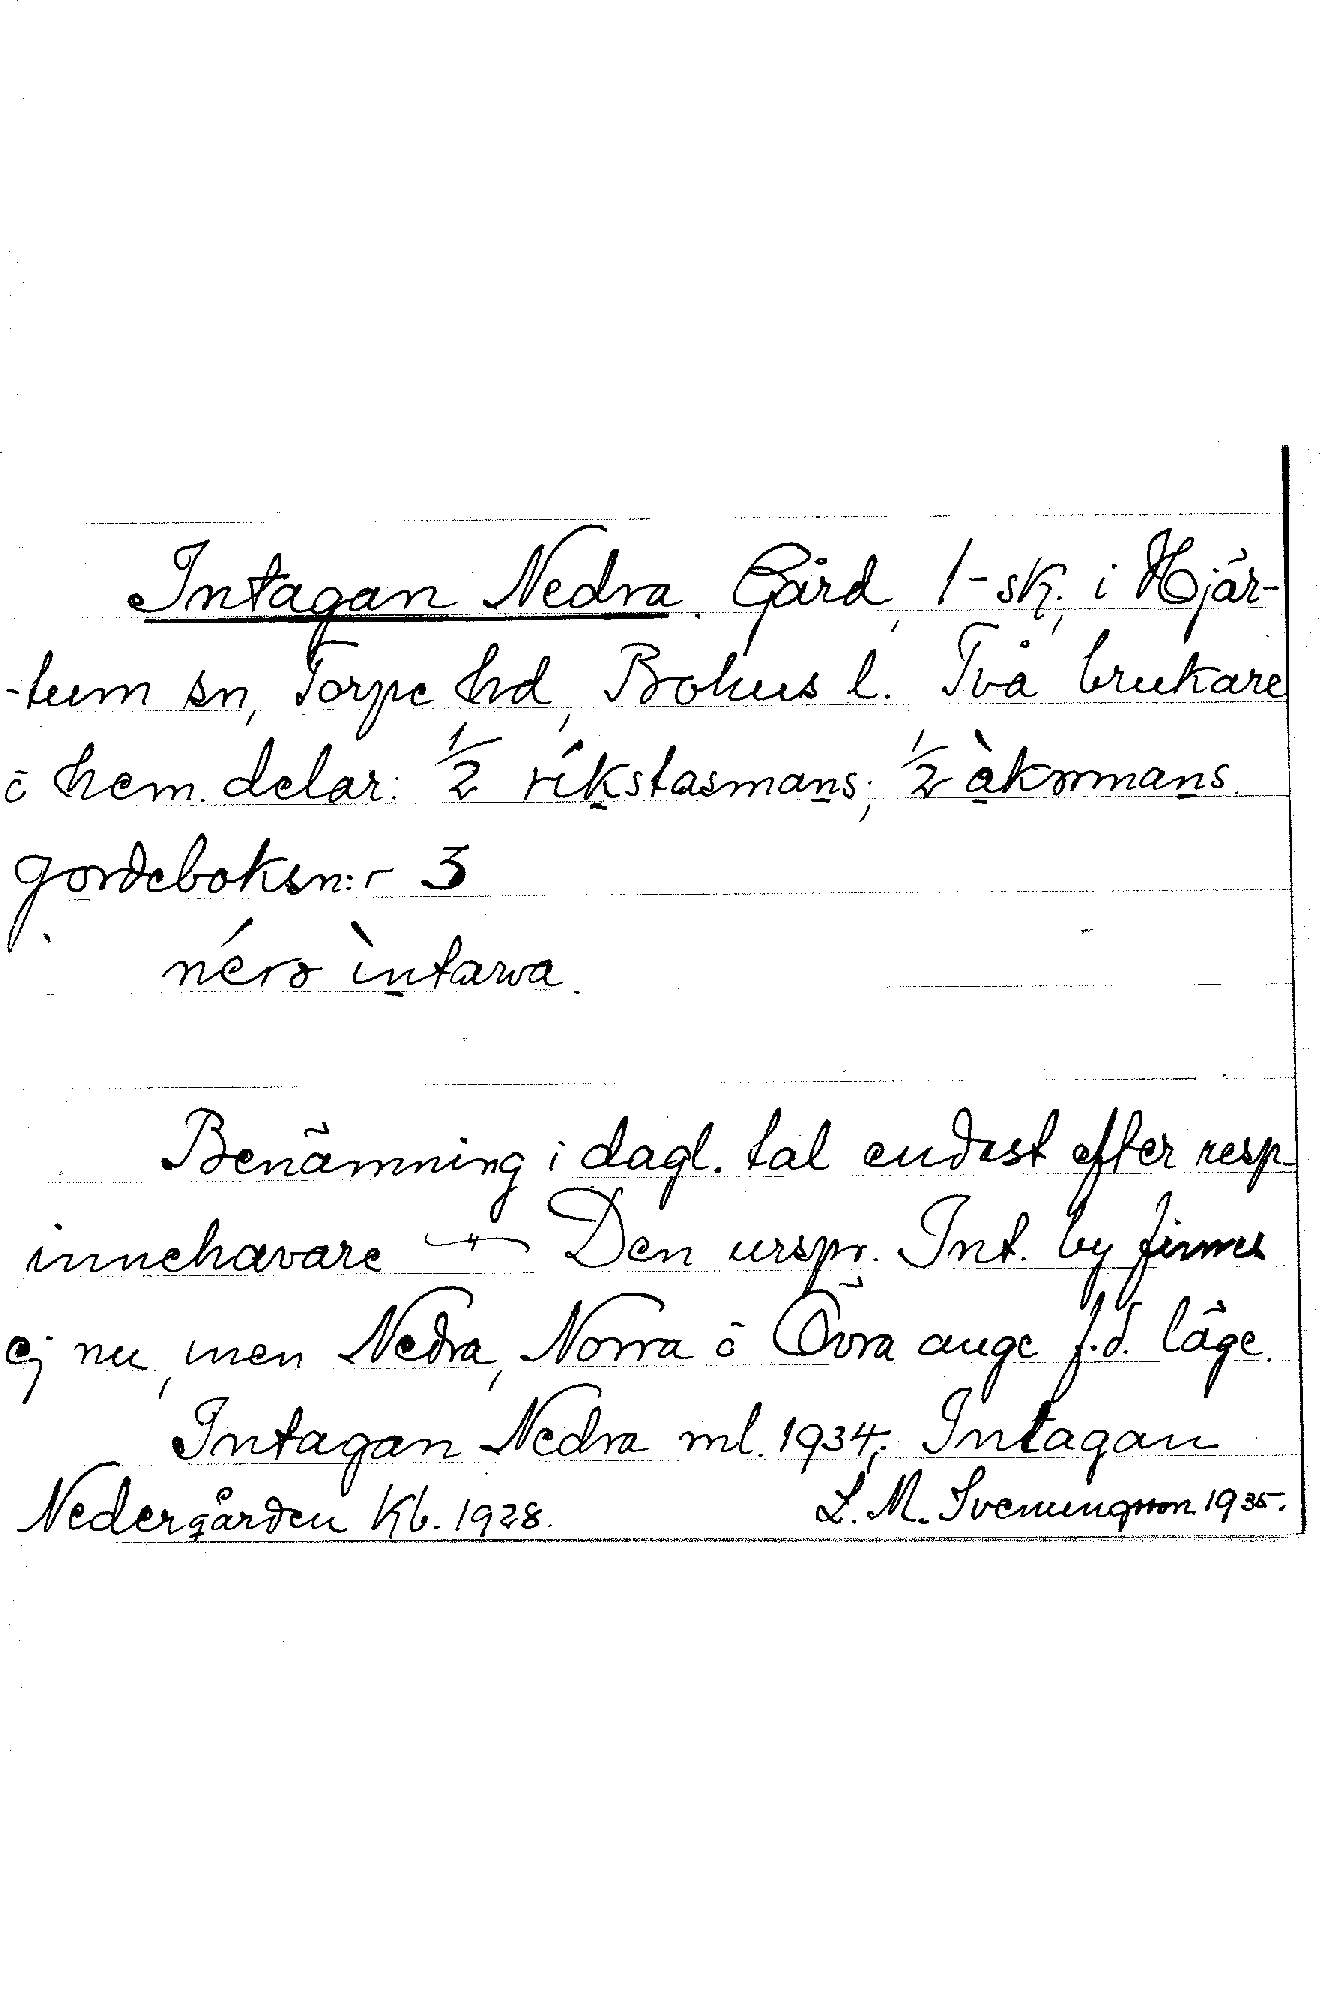 Intagan Nedra. Gård, 1-sk, i Hjär-
-tum sn, Torpe hd, Bohus l. Två brukare
ō hem. delar: 1/2 ríkstasmans; 1/2 àkmmans.
gordeboksn:r 3
néro ìntawa.
Benämning i dagl. tal endast efter resp
innehavare — " — Den urspr. Int. by finnes
ej nu, men Nedra, Norra ō Övra ange f.d. läge.
Intagan Nedra ml. 1934; Intagan
Nedergården Kb. 1928.
L. M. Svenungsson 1935.